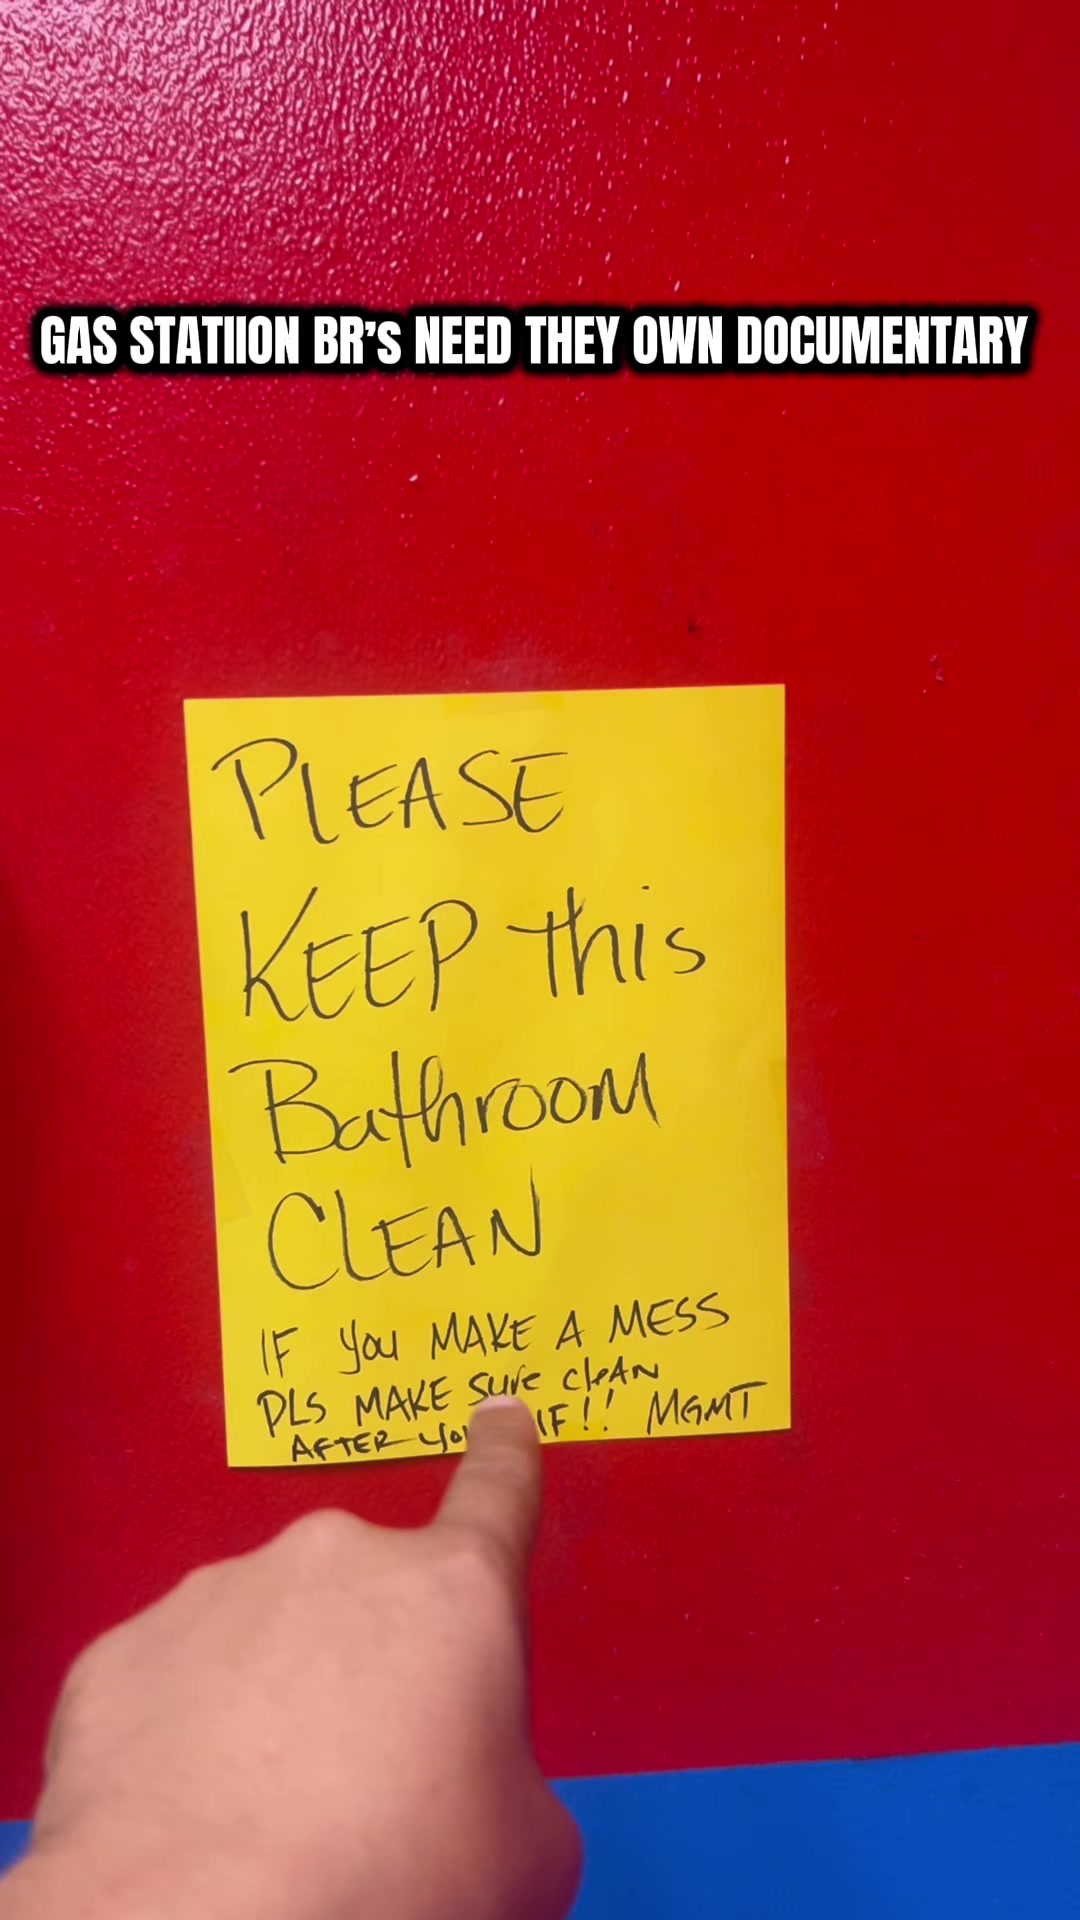 GAS STATIION BR's NEED THEY OWN DOCUMENTARY
PLEASE
KEEP this
Bathroom
CLEAN
IF you MAKE A MESS
PLS MAKE sure cleAN
AFTER !! MGMT